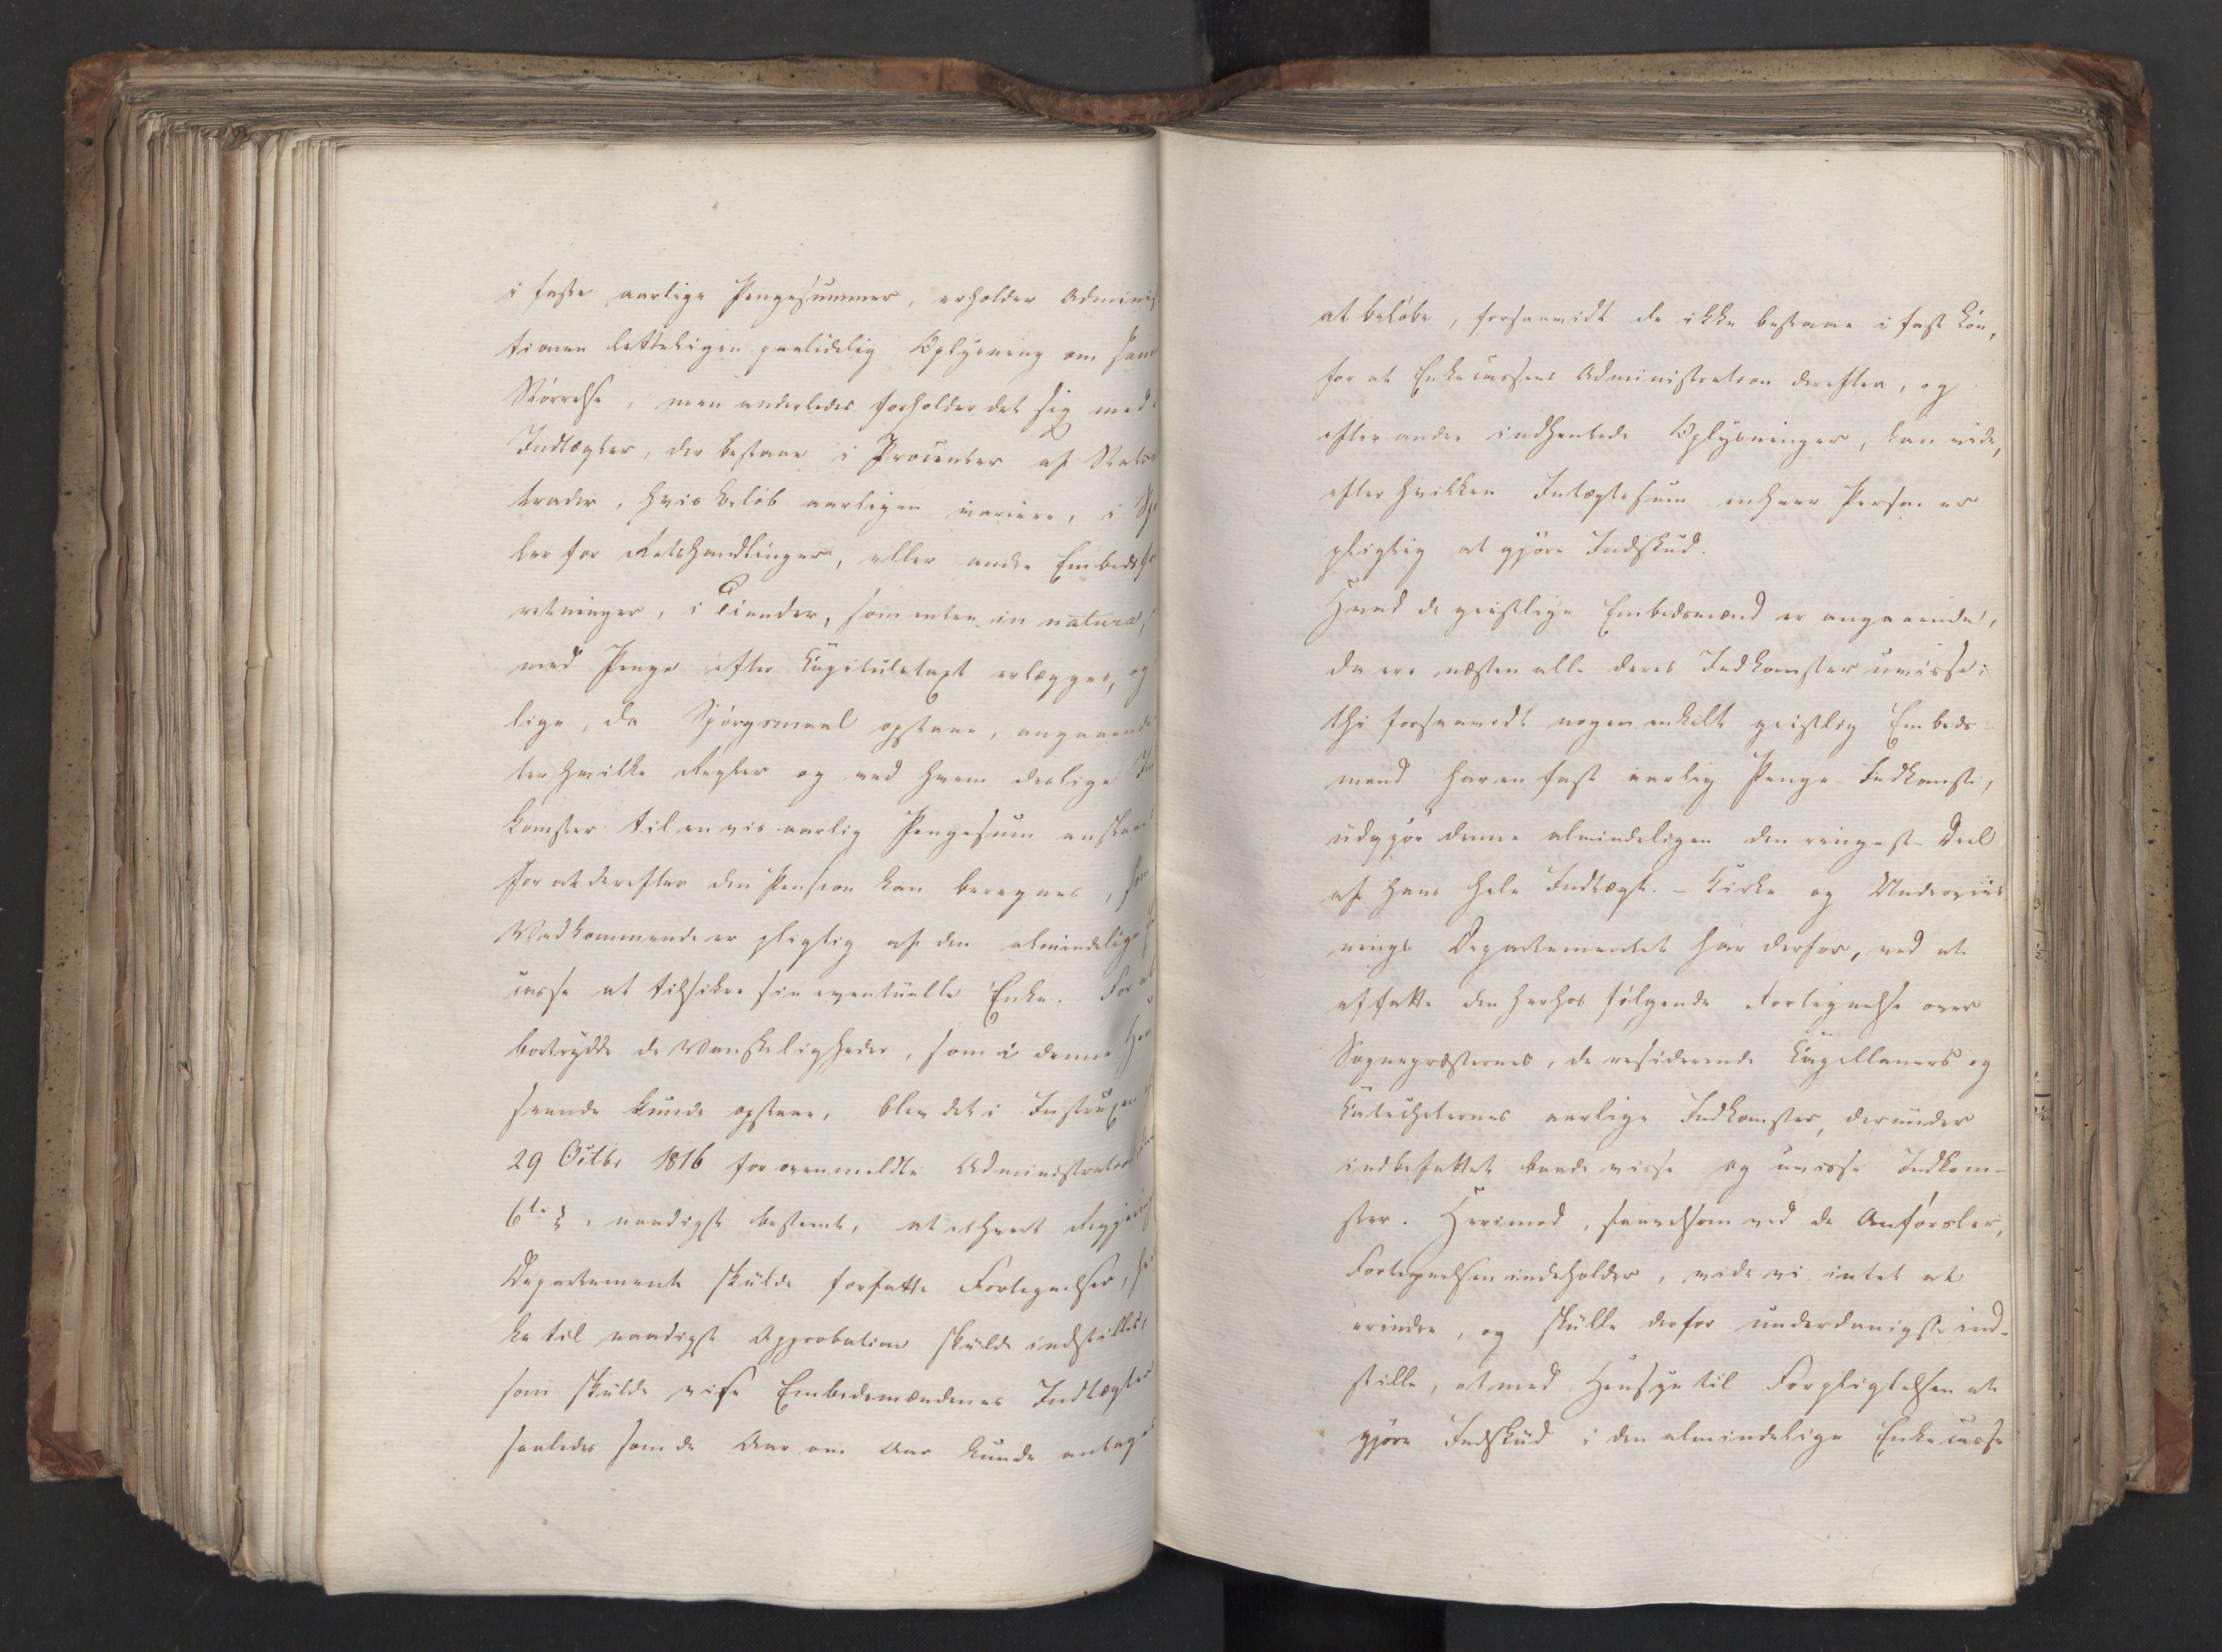 i faste aarlige Pengesummer, erholder Adminis
tionen letteligen paalidelig Oplysning om sam
Størrelse, men anderledes forholder det sig med
Indtægter, der bestaae i Procenter af Stats
trader, hvis Beløb aarligen variere, i Sp
ler for Retshandlinger, eller andre Embedsfor
retninger, i Tiender, som enten in natura,
med Penge efter Capitulstaxt erlægges, og
lige, da Spørgsmaal opstaae, angaaende
ter hvilke Regler og ved hvem deslige In
komster til en vis aarlig Pengesum anslaaes
for at derefter den Pension kan beregnes, som
Vedkommende er pligtig af den almindelige
casse at tilsikre sin eventuelle Enke. For at
bortrydde de Vanskeligheder, som i denne Hen
seende kunde opstaae, blev det i Instruxen
29 Octbr 1816 for ovenmeldte Administration
6te §, naadigst bestemt, at ethvert Regjerings
Departement skulde forfatte Fortegnelser, hvil
ke til naadigst Approbation skulde indstilles,
som skulde vise Embedsmændenes Indtægter
saaledes som de Aar om Aar kunde antages
at beløbe, forsaavidt de ikke bestaae i fast Løn,
for at Enkecassens Administration derefter, og
efter andre indhentede Oplysninger, kan vide,
efter hvilken Intægtssum enhver Person er
pligtig at gjøre Indskud.
Hvad de geistlige Embedsmænd er angaaende,
da ere næsten alle deres Indkomster uvisse;
thi forsaavidt nogen enkelt geistlig Embeds-
mand har en fast aarlig Penge-Indkomst,
udgjør denne almindeligen den ringeste Deel
af hans hele Indtægt. - Kirke og Underviis
nings Departementet har derfor, ved at
affatte den herhos følgende Fortegnelse over
Sognepræsternes, de residerende Capellaners og
Catecheternes aarlige Indkomster, derunder
indbefattet baade visse og uvisse Indkom-
ster. Herimod, saavelsom ved de Anførsler,
Fortegnelsen indeholder, vide vi intet at
erindre, og skulle derfor underdanigst ind-
stille, at med Hensyn til Forpligtelsen at
gjøre Indskud i den almindelige Enkecasse